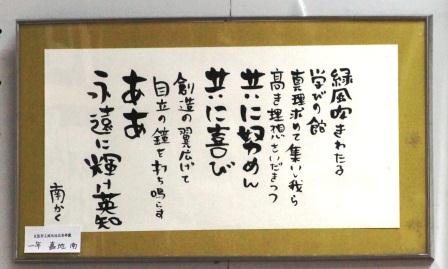 緑風吹きわたる
学びの館
真理求めて集いし我ら
高き理想をいだきつつ
共に努めん
共に喜び
創造の翼広げて
自立の鐘を打ち鳴らす
ああ
永遠に輝け英知
南かく
一年 嘉地 南